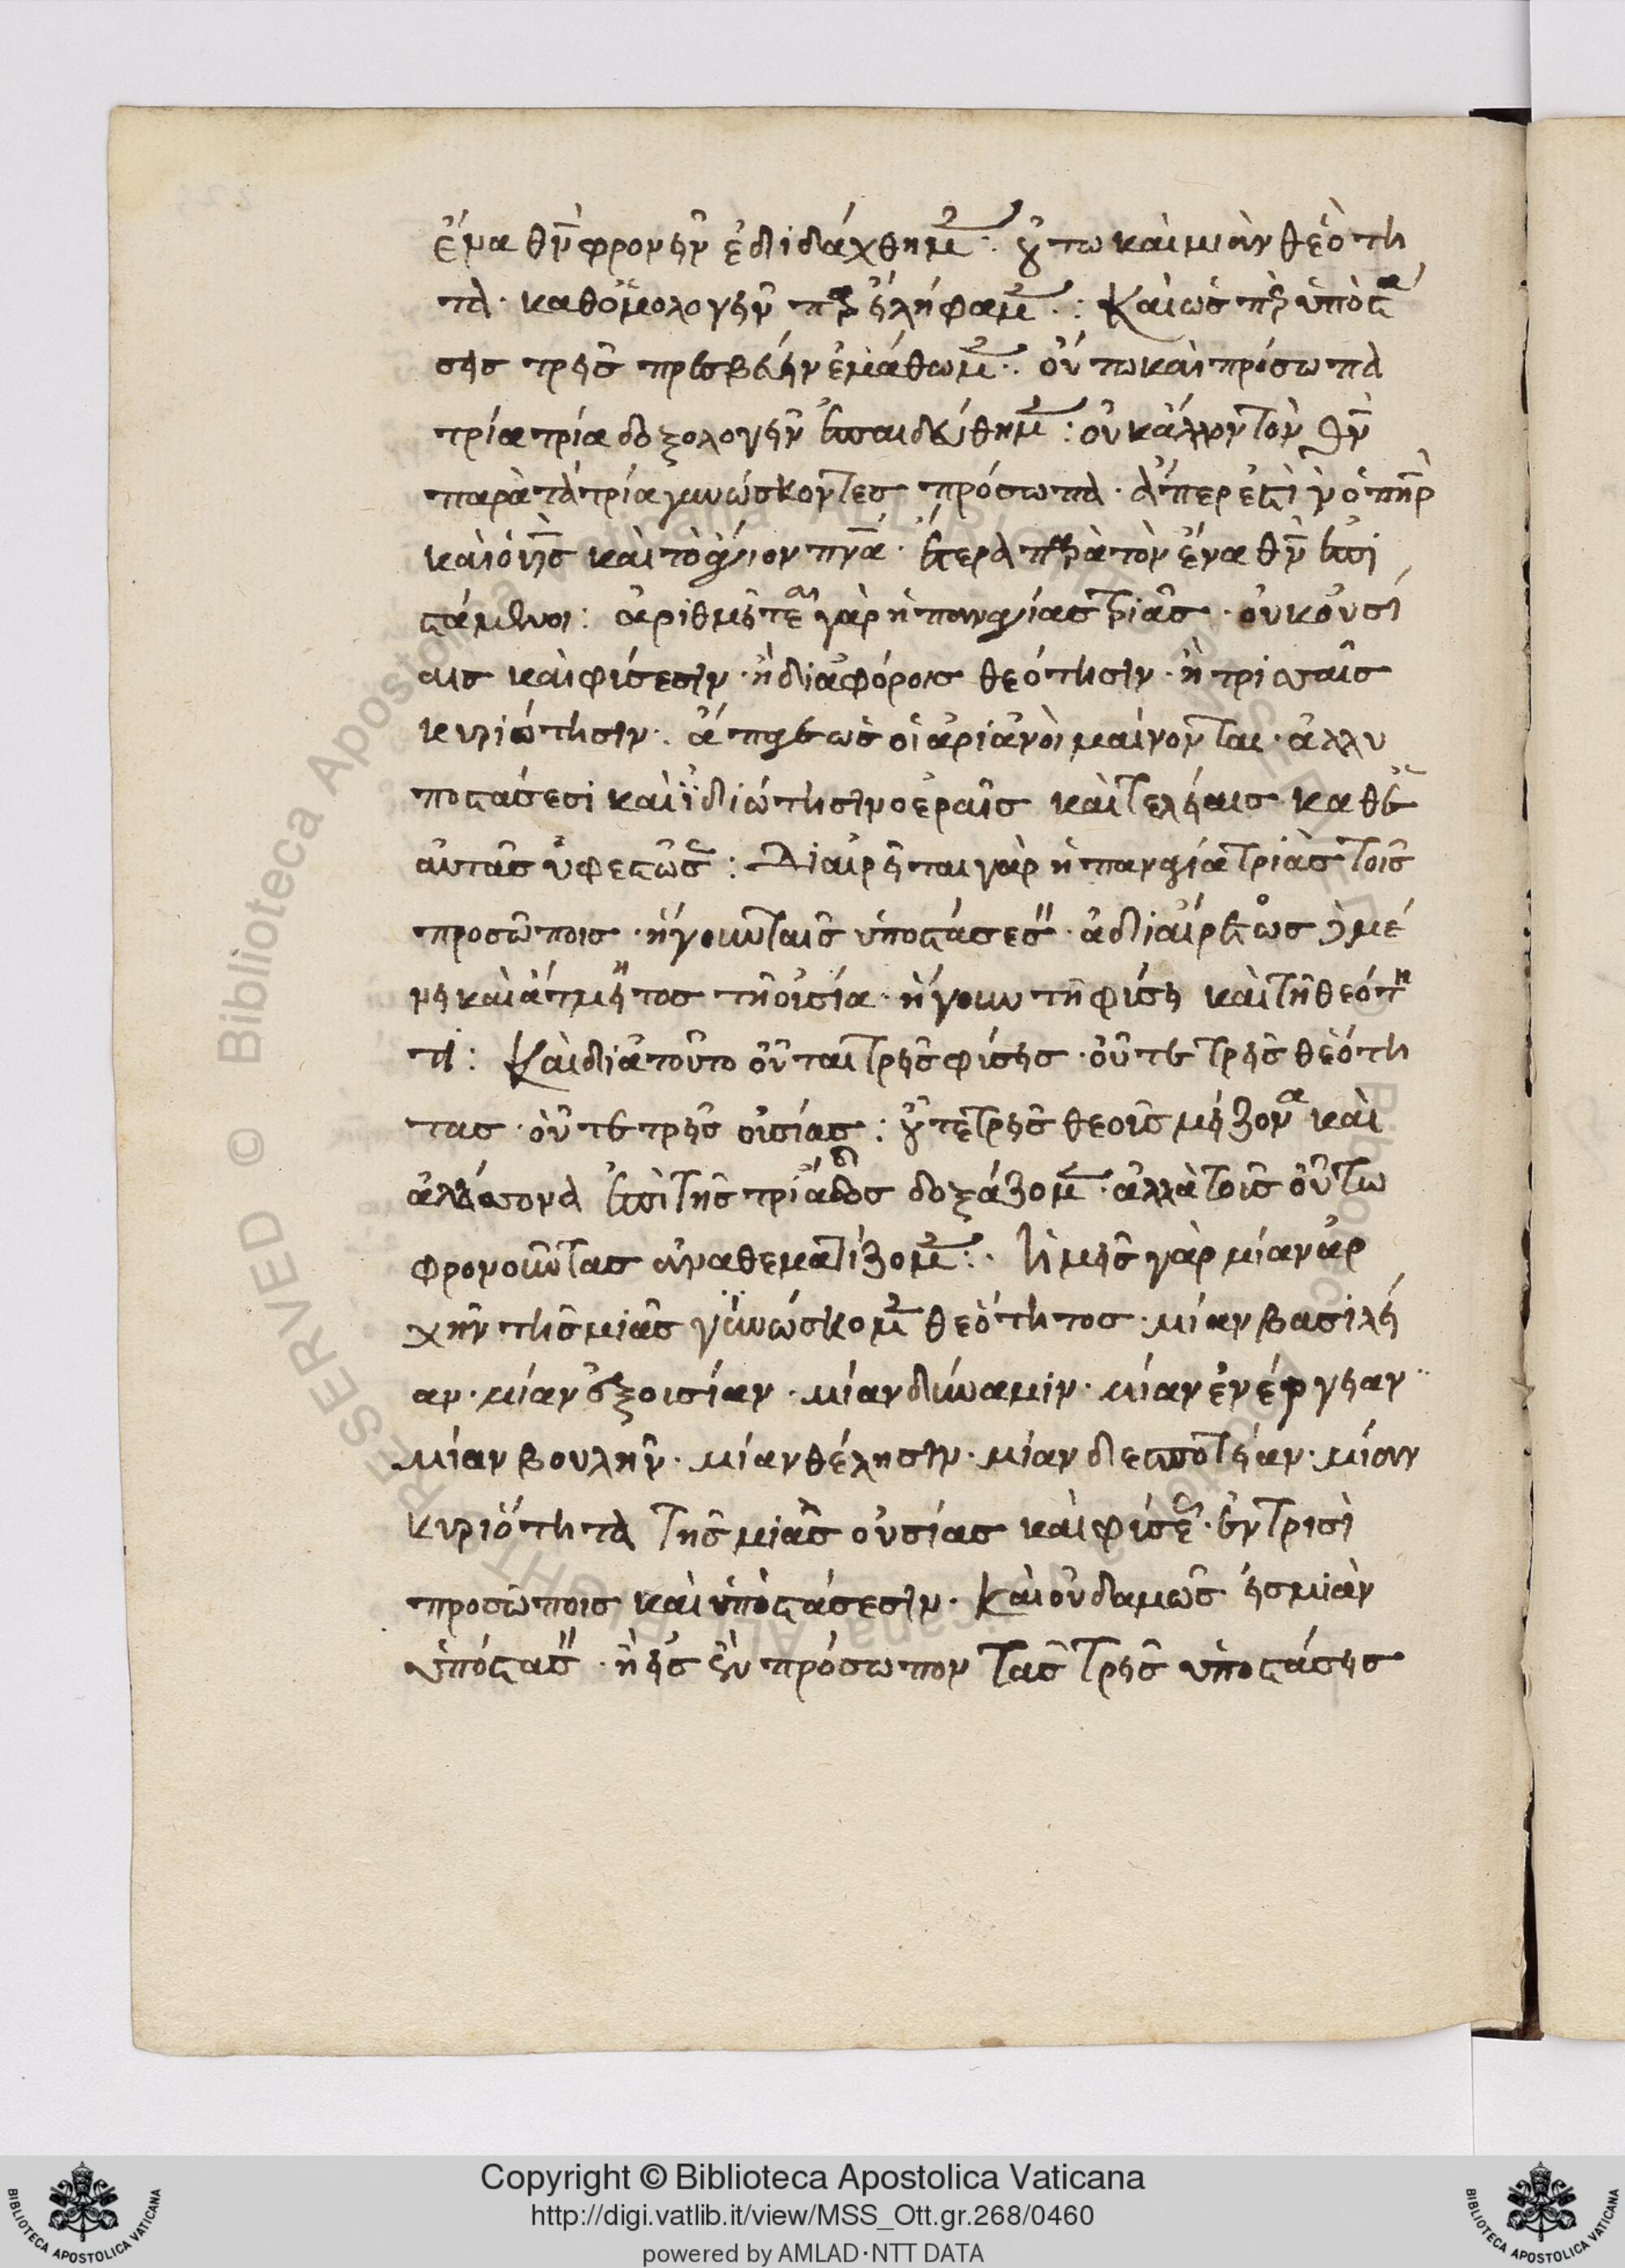 ἕνα θν φρονεῖν ἐδιδάχθημ. οὕτω καὶ μίαν θεότη
τα· καθομολογεῖν παρειλήφαμ: Καὶ ὡς τρ ὑποστ
σεις τρεῖς πρεσβεύειν ἐμάθωμ. οὕτω καὶ πρόσωπα
τρία τρία δοξολογεῖν ἐπαιδεύθημ: οὐκ ἄλλον τὸν θν
παρὰ τὰ τρία γινώσκοντες πρόσωπα· ἅπερ ἐστὶν ὁ πηρ
καὶ ὁ ὑς καὶ τὸ ἅγιον πνα· ἕτερα παρὰ τὸν ἕνα θν ἐπι
στάμενοι: ἀριθμεῖτε γὰρ ἡ παναγίας τριάς· οὐκ οὐσί
αις καὶ φύσεσιν· ἢ διαφόροις θεότησιν· ἢ τρισταῖς
κυριότησιν. ἅπερ ὡς οἱ ἀριανοὶ μαίνονται· ἀλλ υ
ποστάσεσι καὶ ἰδιώτησι νοεραῖς καὶ τελείαις καθ ἑ
αυτὰς ὑφεστώσ: Διαιρεῖται γὰρ ἡ παναγία τριὰς τοῖς
προσώποις· ἤγουν ταῖς ὑποστάσεσ· ἀδιαίρετως μέ
νει καὶ ἀτμεῖτος τῆ οὐσία· ἤγουν τῆ φύσει καὶ τῆ θεότη
τι: Καὶ διὰ τοῦτο οὔται τρεῖς φύσεις· οὔτε τρεῖς θεότη
τας· οὔτε τρεῖς οὐσίας: οὔτε τρεῖς θεοὺς μείζονα καὶ
ἀλάσσονα ἐπὶ τῆς τριάδος δοξάζομ· ἀλλὰ τοὺς οὕτω
φρονοῦντας ἀναθεματίζομ: Ἡμεῖς γὰρ μίαν ἀρ
χὴν τῆς μιᾶς γινώσκομ θεότητος· μίαν βασιλεί
αν· μίαν ἐξουσίαν· μίαν δύναμιν· μίαν ἐνέργειαν
μίαν βουλὴν· μίαν θέλησιν· μίαν δεσποτείαν· μίαν
κυριότητα τῆς μιᾶς οὐσίας καὶ φύσε· ἐν τρισὶ
προσώποις καὶ ὑποστάσεσιν· Καὶ οὐδαμῶς εἰς μίαν
ὑπόστασ· ἢ εἰς ἓν πρόσωπον τὰς τρεῖς ὑποστάσεις
Copyright © Biblioteca Apostolica Vaticana
http://digi.vatlib.it/view/MSS_Ott.gr.268/0460
powered by AMLAD·NTT DATA